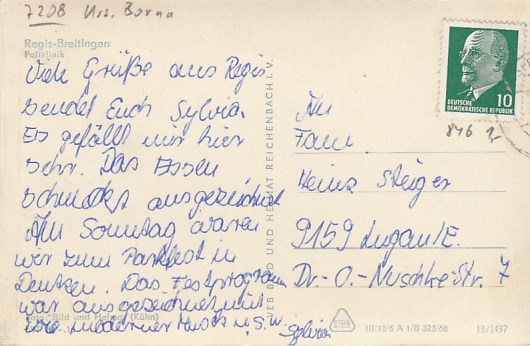 7208 Krs. Borna
Regis-Breitingen
Poliklinik
Viele Grüße aus Regis
sendet Euch Sylvia.
Es gefällt mir hier
sehr. Das Essen
schmeckt ausgezeichnet
Am Sonntag waren
wir zum Parkfest in
Deutzen. Das Festprogramm
war ausgezeichnet mit
Foto: Bild und Heimat (Kühn)
wie moderner Musik u.s.w.
Sylvia
VEB BILD UND HEIMAT REICHENBACH I. V.
10
DEUTSCHE
DEMOKRATISCHE REPUBLIK
846 1,-
An
Fam.
Heinz Steiger
9159 Lugau/E.
Dr.-O.-Nuschke-Str. 7
III/18/6 A 1/B 323/68
13/1437